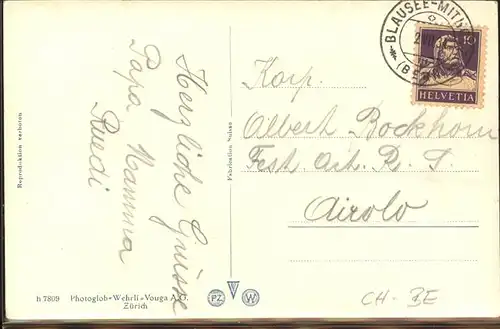 Herzliche Grüsse
Papa Mamma
Ruedi
Reproduktion verboten
Fabrication Suisse
BLAUSEE-MITH
(BE
10
HELVETIA
Korp.
Albert Bockhorn
Fest. Art. R. S.
Airolo
h 7809 Photoglob-Wehrli-Vouga A.G.
Zürich
PZ W
CH-BE